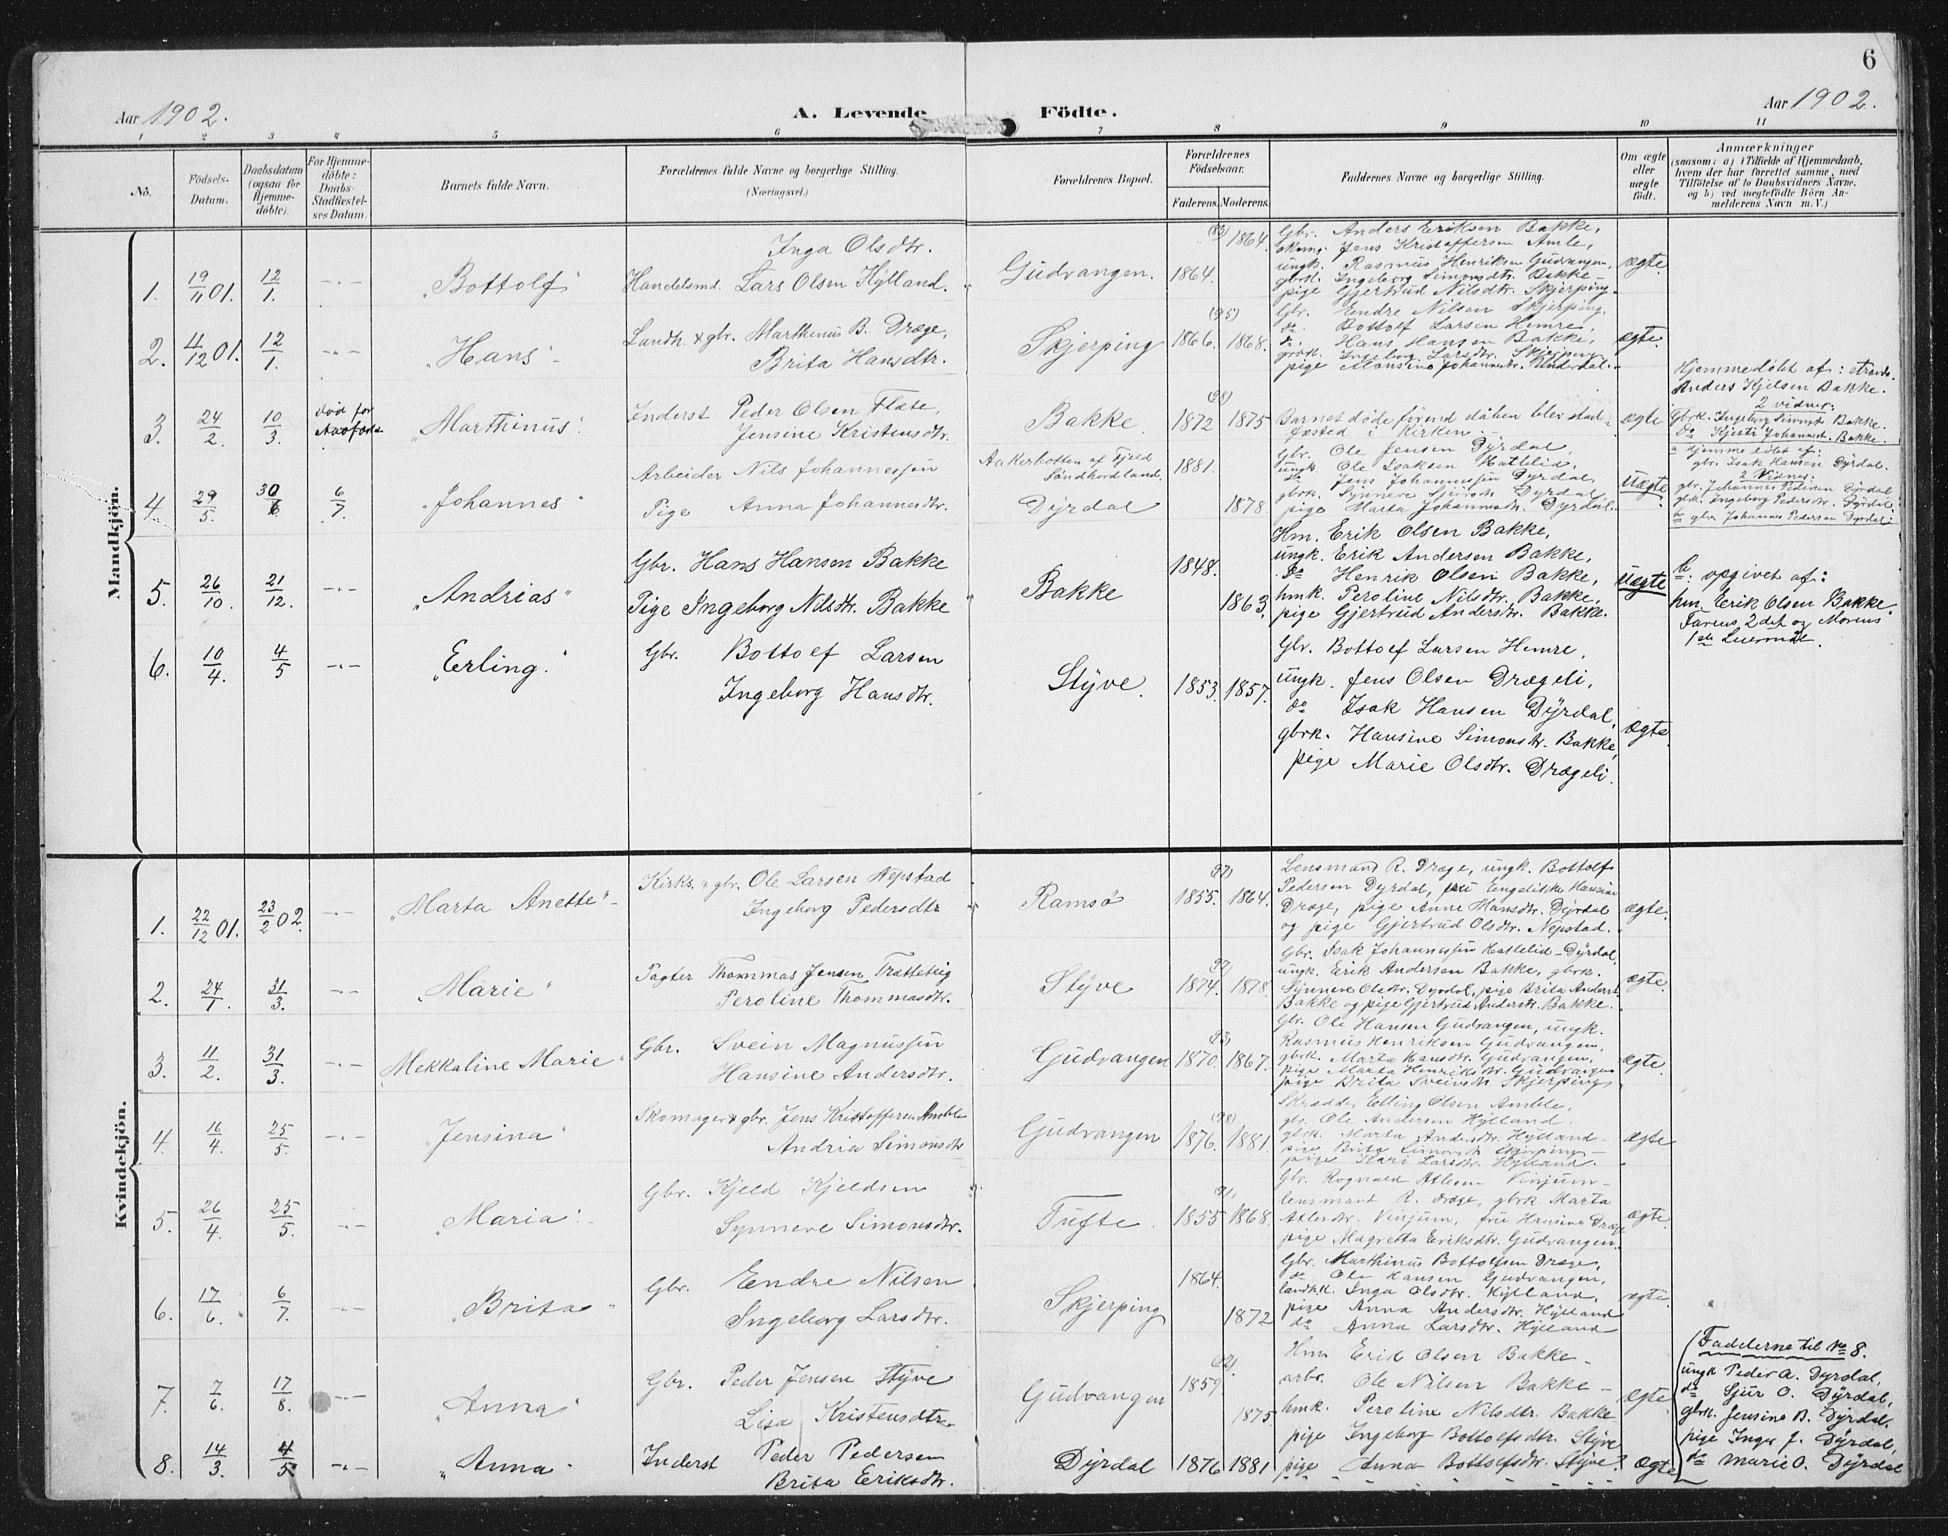 6
Aar 1902.
A. Levende Födte.
Aar 1902.
1 2 3 4 5 6 7 8 9 10 11
No.
Födsels-
Datum.
Daabsdatum
(ogsaa for
Hjemme-
döbte).
For Hjemme-
döbte:
Daabs-
Stadfæstel-
ses Datum.
Barnets fulde Navn.
Forældrenes fulde Navne og borgerlige Stilling.
(Næringsvei.)
Forældrenes Bopæl.
Forældrenes
Födselsaar.
Faderens. Moderens.
Faddernes Navne og borgerlige Stilling.
Om ægte
eller
uægte
födt.
Anmærkninger
(saasom: a) i Tilfælde af Hjemmedaab,
hvem der har forrettet samme, med
Tilföielse af to Daabsvidners Navne,
og b) ved uægtefödte Börn An-
melderens Navn m. V.)
Mandkjön.
1. 19/11 01. 12/1. -"- "Bottolf"
Inga Olsdtr.
Handelsmd. Lars Olsen Hylland.
Gudvangen. 1864. 1864.
Gbr. Anders Eriksen Bakke,
Jens Kristoffersen Amle,
ungk. Rasmus Henriksen Gudvangen,
gbrk. Ingeborg Simonsdtr. Bakke-
pige Gjertrud Nilsdtr. Skjerping.
ægte.
2. 4/12 01. 12/1. -"- "Hans"
Landh. & gbr. Marthinus B. Drege,
Brita Hansdtr.
Skjerping 1866. 1868.
(95)
Gbr. Endre Nilsen Skjerping,
do. Bottolf Larsen Hemre,
do. Hans Hansen Bakke,
Ingeborg Larsdtr. Skjerping
pige Johannesdtr.
ægte.
3. 24/2. 10/3. död for "Marthinus"
Inderst Peder Olsen Flæte,
Jensine Kristensdtr.
Bakke. 1872 1875
(98)
Barnet döde förend dåben blev stad-
fæsted i Kirken.
ægte
Hjemmedöbt af:
Anders Kjelsen Bakke.
2 vidner:
Gbrk. Ingeborg Bakke.
do Kjersti Johannesdt. Bakke.
4. 29/5. 30/6. 6/7. "Johannes"
Arbeider Nils Johannessen
Pige Anna Johannesdtr.
Aakerbotten af Fjeld
Söndhordland. 1881.
Dyrdal 1878
Gbr. Ole Jensen Dyrdal,
ungk. Ole Isaksen Hattelid,
do Jens Johannessen Dyrdal,
gbrk. Synneve Dyrdal,
pige Marta Johannesdtr. Dyrdal.
uægte
a Hjemmedöbt af:
gbr. Isak Hansen Dyrdal.
2 Vidner:
gbr. Johannes Pedersen Dyrdal
gbrk. Ingeborg Pedersdtr. Dyrdal.
b gbr Johannes Pedersen Dyrdal.
5. 26/10. 21/12. -"- "Andrias"
Gbr. Hans Hansen Bakke
Pige Ingeborg Nilsdtr. Bakke
Bakke 1848. 1863,
Hm. Erik Olsen Bakke,
ungk. Erik Andersen Bakke,
do Henrik Olsen Bakke,
hmk. Peroline Nilsdtr. Bakke,
pige Gjertrud Andersdtr. Bakke.
uægte
b: opgivet af:
hm. Erik Olsen Bakke.
Farens 2det og Morens
1ste Leiermål.
6. 10/4. 4/5 -"- "Erling."
Gbr. Bottolf Larsen
Ingeborg Hansdtr.
Styve. 1853. 1857.
Gbr. Bottolf Larsen Hemre,
ungk. Jens Olsen Drægeli,
do Isak Hansen Dyrdal,
gbrk. Hansine Simonsdtr. Bakke,
pige Marie Olsdtr. Drægeli.
ægte
Kvindekjön.
1. 22/12 01. 23/2 02. -"- "Marta Anette"
Kirks. & gbr. Ole Larsen Nepstad
Ingeborg Pedersdtr
Ramsö 1855. 1864.
(97)
Lensmand R. Drege, ungk. Bottolf
Pedersen Dyrdal, frü Engelikke Hansine
Drege, pige Anne Hansdtr. Dyrdal
og pige Gjertrud Olsdtr. Nepstad.
ægte.
2. 24/1. 31/3. -"- "Marie"
Pagter Thommas Jensen Trætteteig
Peroline Thommasdtr.
Styve 1874. 1878.
(97)
Gbr. Isak Johannessen Hattelid-Dyrdal,
ungk. Erik Andersen Bakke, gbrk.
Synneve Olsdtr. Dyrdal, pige Brita Andersdt.
Bakke og pige Gjertrud Andersdt. Bakke.
ægte.
3. 11/2. 31/3. -"- "Mekkaline Marie"
Gbr. Svein Magnussen
Hansine Andersdtr.
Gudvangen 1870. 1867.
(93)
Gbr. Ole Hansen Gudvangen, ungk.
Rasmus Henriksen Gudvangen,
gbrk. Marta Hansdtr. Gudvangen,
pige Marta Henriksdtr. Gudvangen
pige Brita Sveinsdt. Skjerping
ægte.
4. 16/4. 25/5. -"- "Jensina"
Skomager & gbr. Jens Kristoffersen Amble
Andria Simonsdtr
Gudvangen 1876. 1881
(98)
Skrædder Elling Olsen Amble,
gbr. Ole Andersen Hylland.
gbrk. Marta Andersdtr. Hylland-
pige Brita Simonsdt. Skjerping-
pige Kari Larsdtr. Hylland.
ægte
5. 26/4. 25/5. -"- "Maria"
Gbr. Kjeld Kjeldsen
Synneve Simonsdtr.
Tufte. 1855 1868.
(91)
Gbr. Rognald Atlesen Vinjum-
lensmand R. Drege, gbrk Marta
Atlesdtr. Vinjum, frü Hansine Drege
pige Magretta Eriksdtr. Gudvangen.
ægte.
6. 17/6. 6/7. -"- "Brita"
Gbr. Endre Nilsen
Ingeborg Larsdtr.
Skjerping 1864. 1872
Gbr. Marthinus Bottolfsen Drege,
do Ole Hansen Gudvangen,
landhk. Inga Olsdtr. Hylland,
pige Anna Andersdtr. Hylland
do Anna Larsdtr. Hylland
ægte.
7. 7/6. 17/8. -"- "Anna"
Gbr. Peder Jensen Styve
Lisa Kristensdtr.
Gudvangen 1859. 1875
Hm Erik Olsen Bakke-
arbr. Ole Nilsen Bakke-
hmk. Peroline Nilsdtr. Bakke
pige Ingeborg Bottolfsdtr. Styve
pige Anna Bottolfsdtr. Styve.
ægte
8. 14/3. 4/5 -"- "Anna"
Inderst Peder Pedersen
Brita Eriksdtr.
Dyrdal 1876 1881
ægte
Fadderne til No 8.
ungk Peder A. Dyrdal,
do Sjur O. Dyrdal,
gbrk. Jensine B. Dyrdal,
pige Inger J. Dyrdal,
do Marie O. Dyrdal